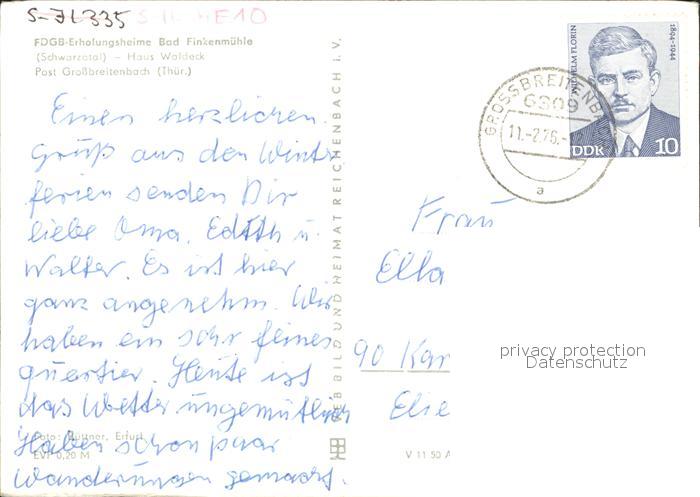 S-JL335 S IL HE10
FDGB-Erholungsheime Bad Finkenmühle
(Schwarzatal) – Haus Waldeck
Post Großbreitenbach (Thür.)
Einen herzlichen
Gruß aus den Winter
ferien senden Dir
liebe Oma, Edith u.
Walter. Es ist hier
ganz angenehm. Wir
haben ein sehr feines
Quartier. Heute ist
das Wetter ungemütlich
Haben schon paar
Wanderungen gemacht.
Foto: Büttner, Erfurt
EVP 0,20 M
VEB BILD UND HEIMAT REICHENBACH I. V.
WILHELM FLORIN
1894-1944
DDR 10
GROSSBREITENBA
6309
11.-2.76.-
a
Frau
Ella
90 Kar
Elie
privacy protection
Datenschutz
V 11 50 A